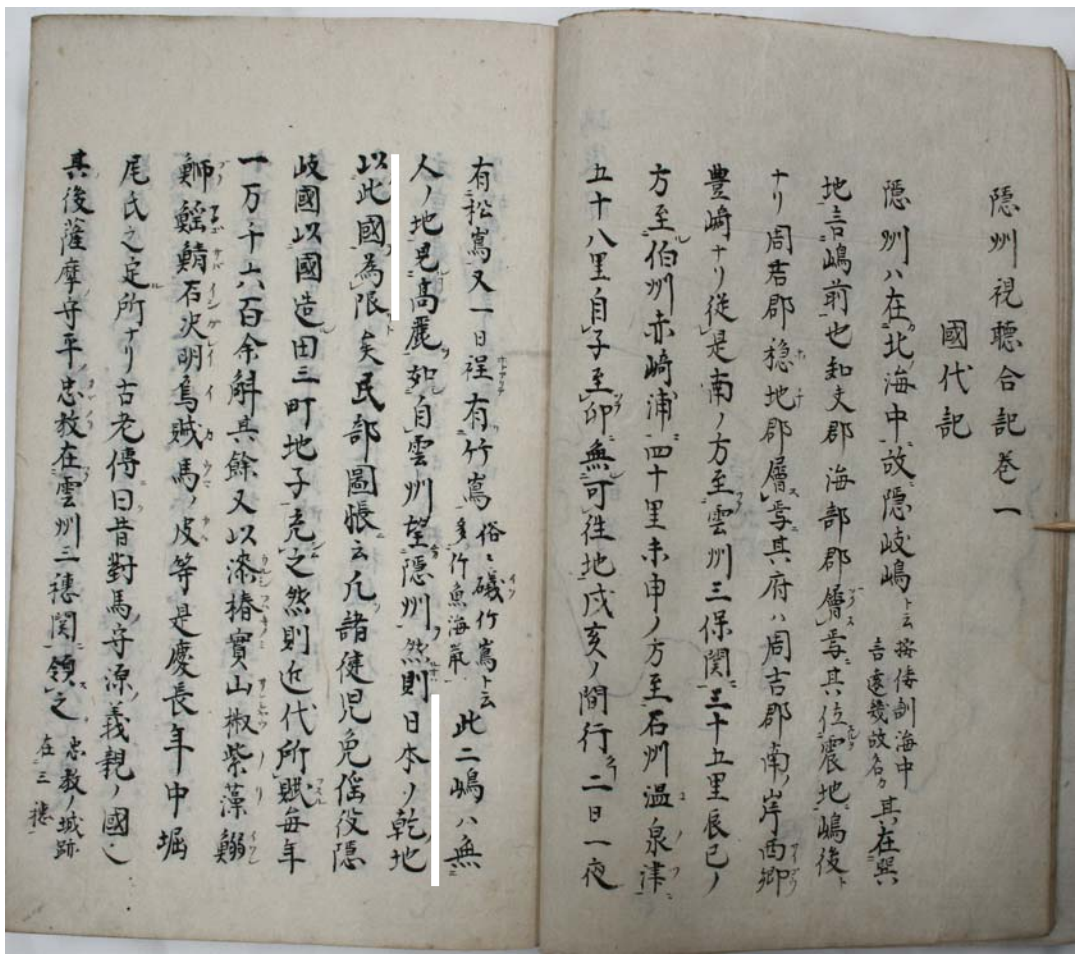 隠州視聴合記巻一
國代記
隠州ハ在北海中故隠岐嶋ト云按倭訓海中言遠幾故名カ其在巽
地言嶋前也知夫郡海部郡屬焉其位震地嶋後ト
ナリ周吉郡穏地郡屬焉其府ハ周吉郡南岸西郷
豊崎ナリ従是南ノ方至雲州三保関三十五里辰巳ノ
方至伯州赤崎浦四十里未申ノ方至石州温泉津
五十八里自子至卯無可往地戍亥ノ間行二日一夜
有松嶌又一日程有竹嶌俗ニ磯竹嶌ト云多竹魚海鹿此二嶋ハ無
人ノ地見髙麗如自雲州望隠州然則日本ノ乾地
以此國為限矣民部圖帳云凡諸健児免徭役隠
岐國以國造田三町地子充之然則近代所賦毎年
一万千六百余斛其餘又以漆椿實山椒紫藻鰯
鰤鰩鯖石决明烏賊馬皮等是慶長年中堀
尾氏之定所ナリ古老傳曰昔對馬守源義親ノ國
其後薩摩守平忠教在雲州三穂関領之忠教ノ城跡在三穂